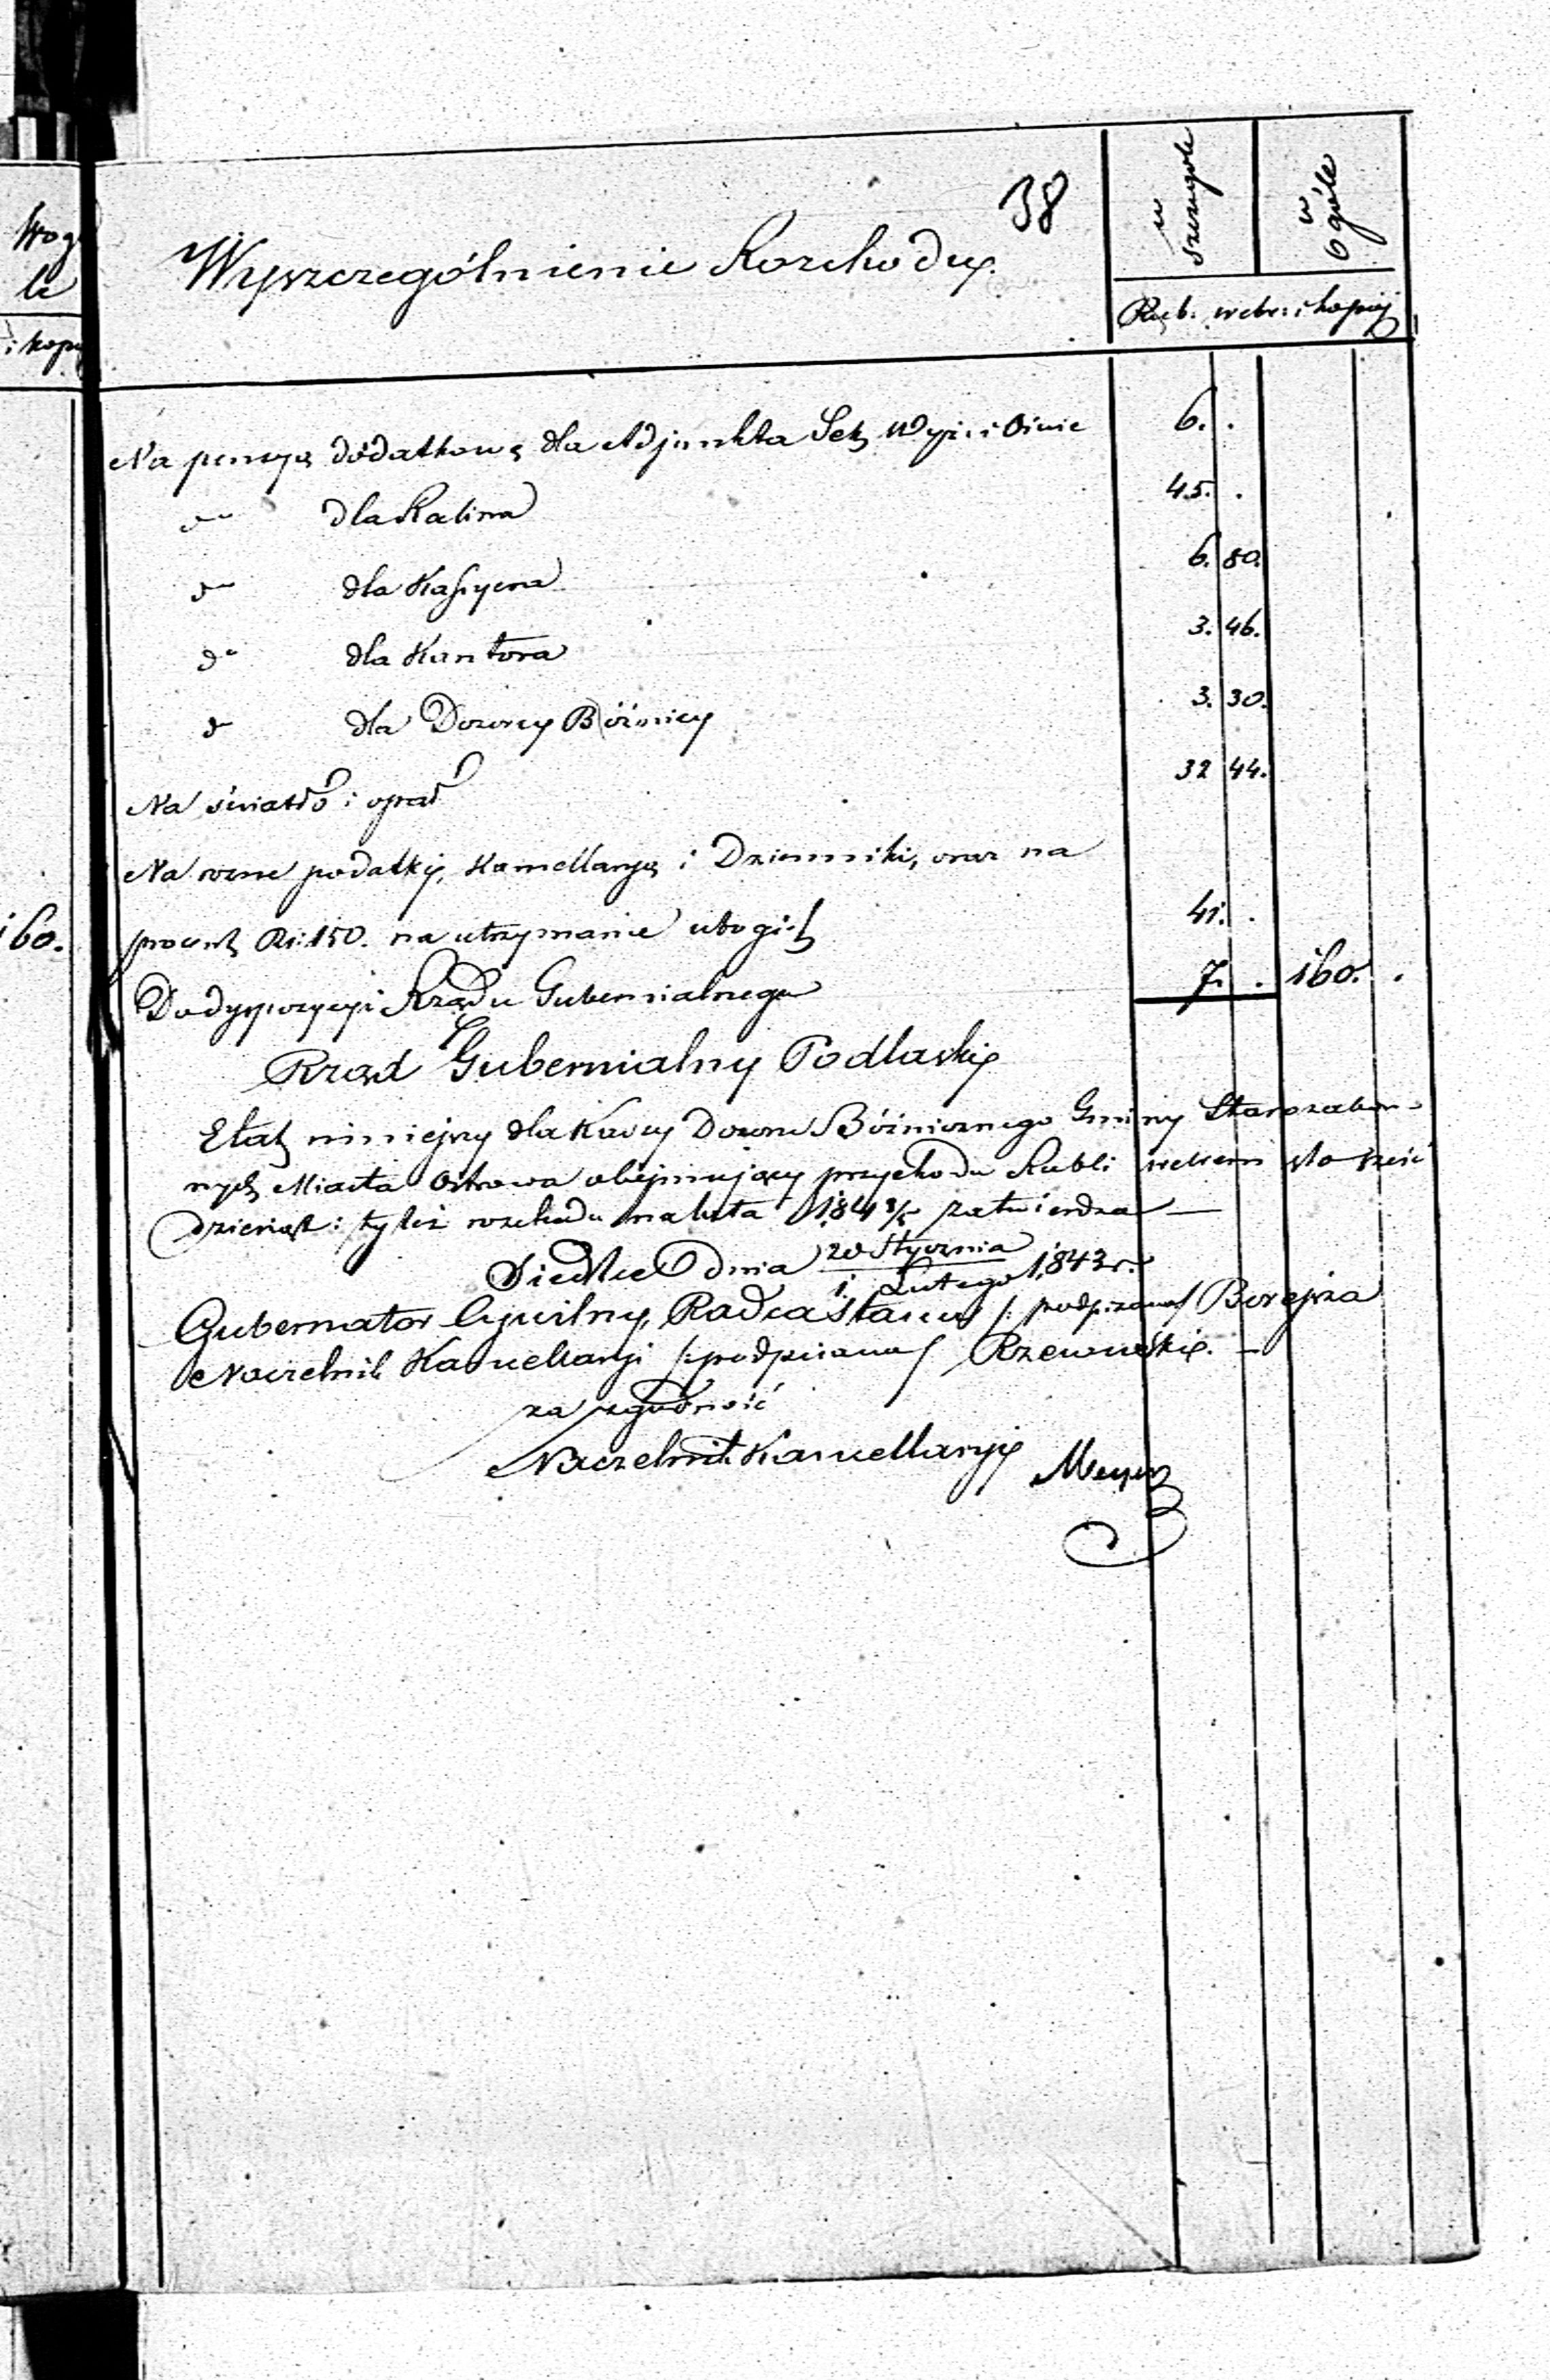 Wog
le
i kop
160.
38
Wyszczególnienie Rozchodu
w szczególe
w ogóle
Rub: srebr: i kopiej
Na pensyą dodatkową dla Adjunkta Sek 6. .
do dla Rabina 45. .
do dla Kassyera 6. 80.
do dla Kantora 3. 46.
do dla Dozorcy Bóźnicy 3. 30.
Na światło i opał 32 44.
Na rozne podatki, Kancellaryą i Dzienniki, oraz na
procent Rs: 150. na utrzymanie ubogich 41. .
Do dyspozycyi Rządu Gubernialnego 7. . 160. .
Rząd Gubernialny Podlaski
Etat niniejszy dla Kassy Dozoru Bóżnicznego Gminy Starozakon-
nych Miasta Ostrowa obejmujący przychodu Rubli srebrem sto sześć
dziesiąt i tyleż rozchodu na lata 1843/5 zatwierdza —
Siedlce dnia 20 Stycznia
1 Lutego 1843 r.
Gubernator Cywilny, Radca Stanu /: podpisano/ Boraysza
Naczelnik Kancellaryi /: podpisano/ Rzewuski. —
za zgodność
Naczelnik Kancellaryi